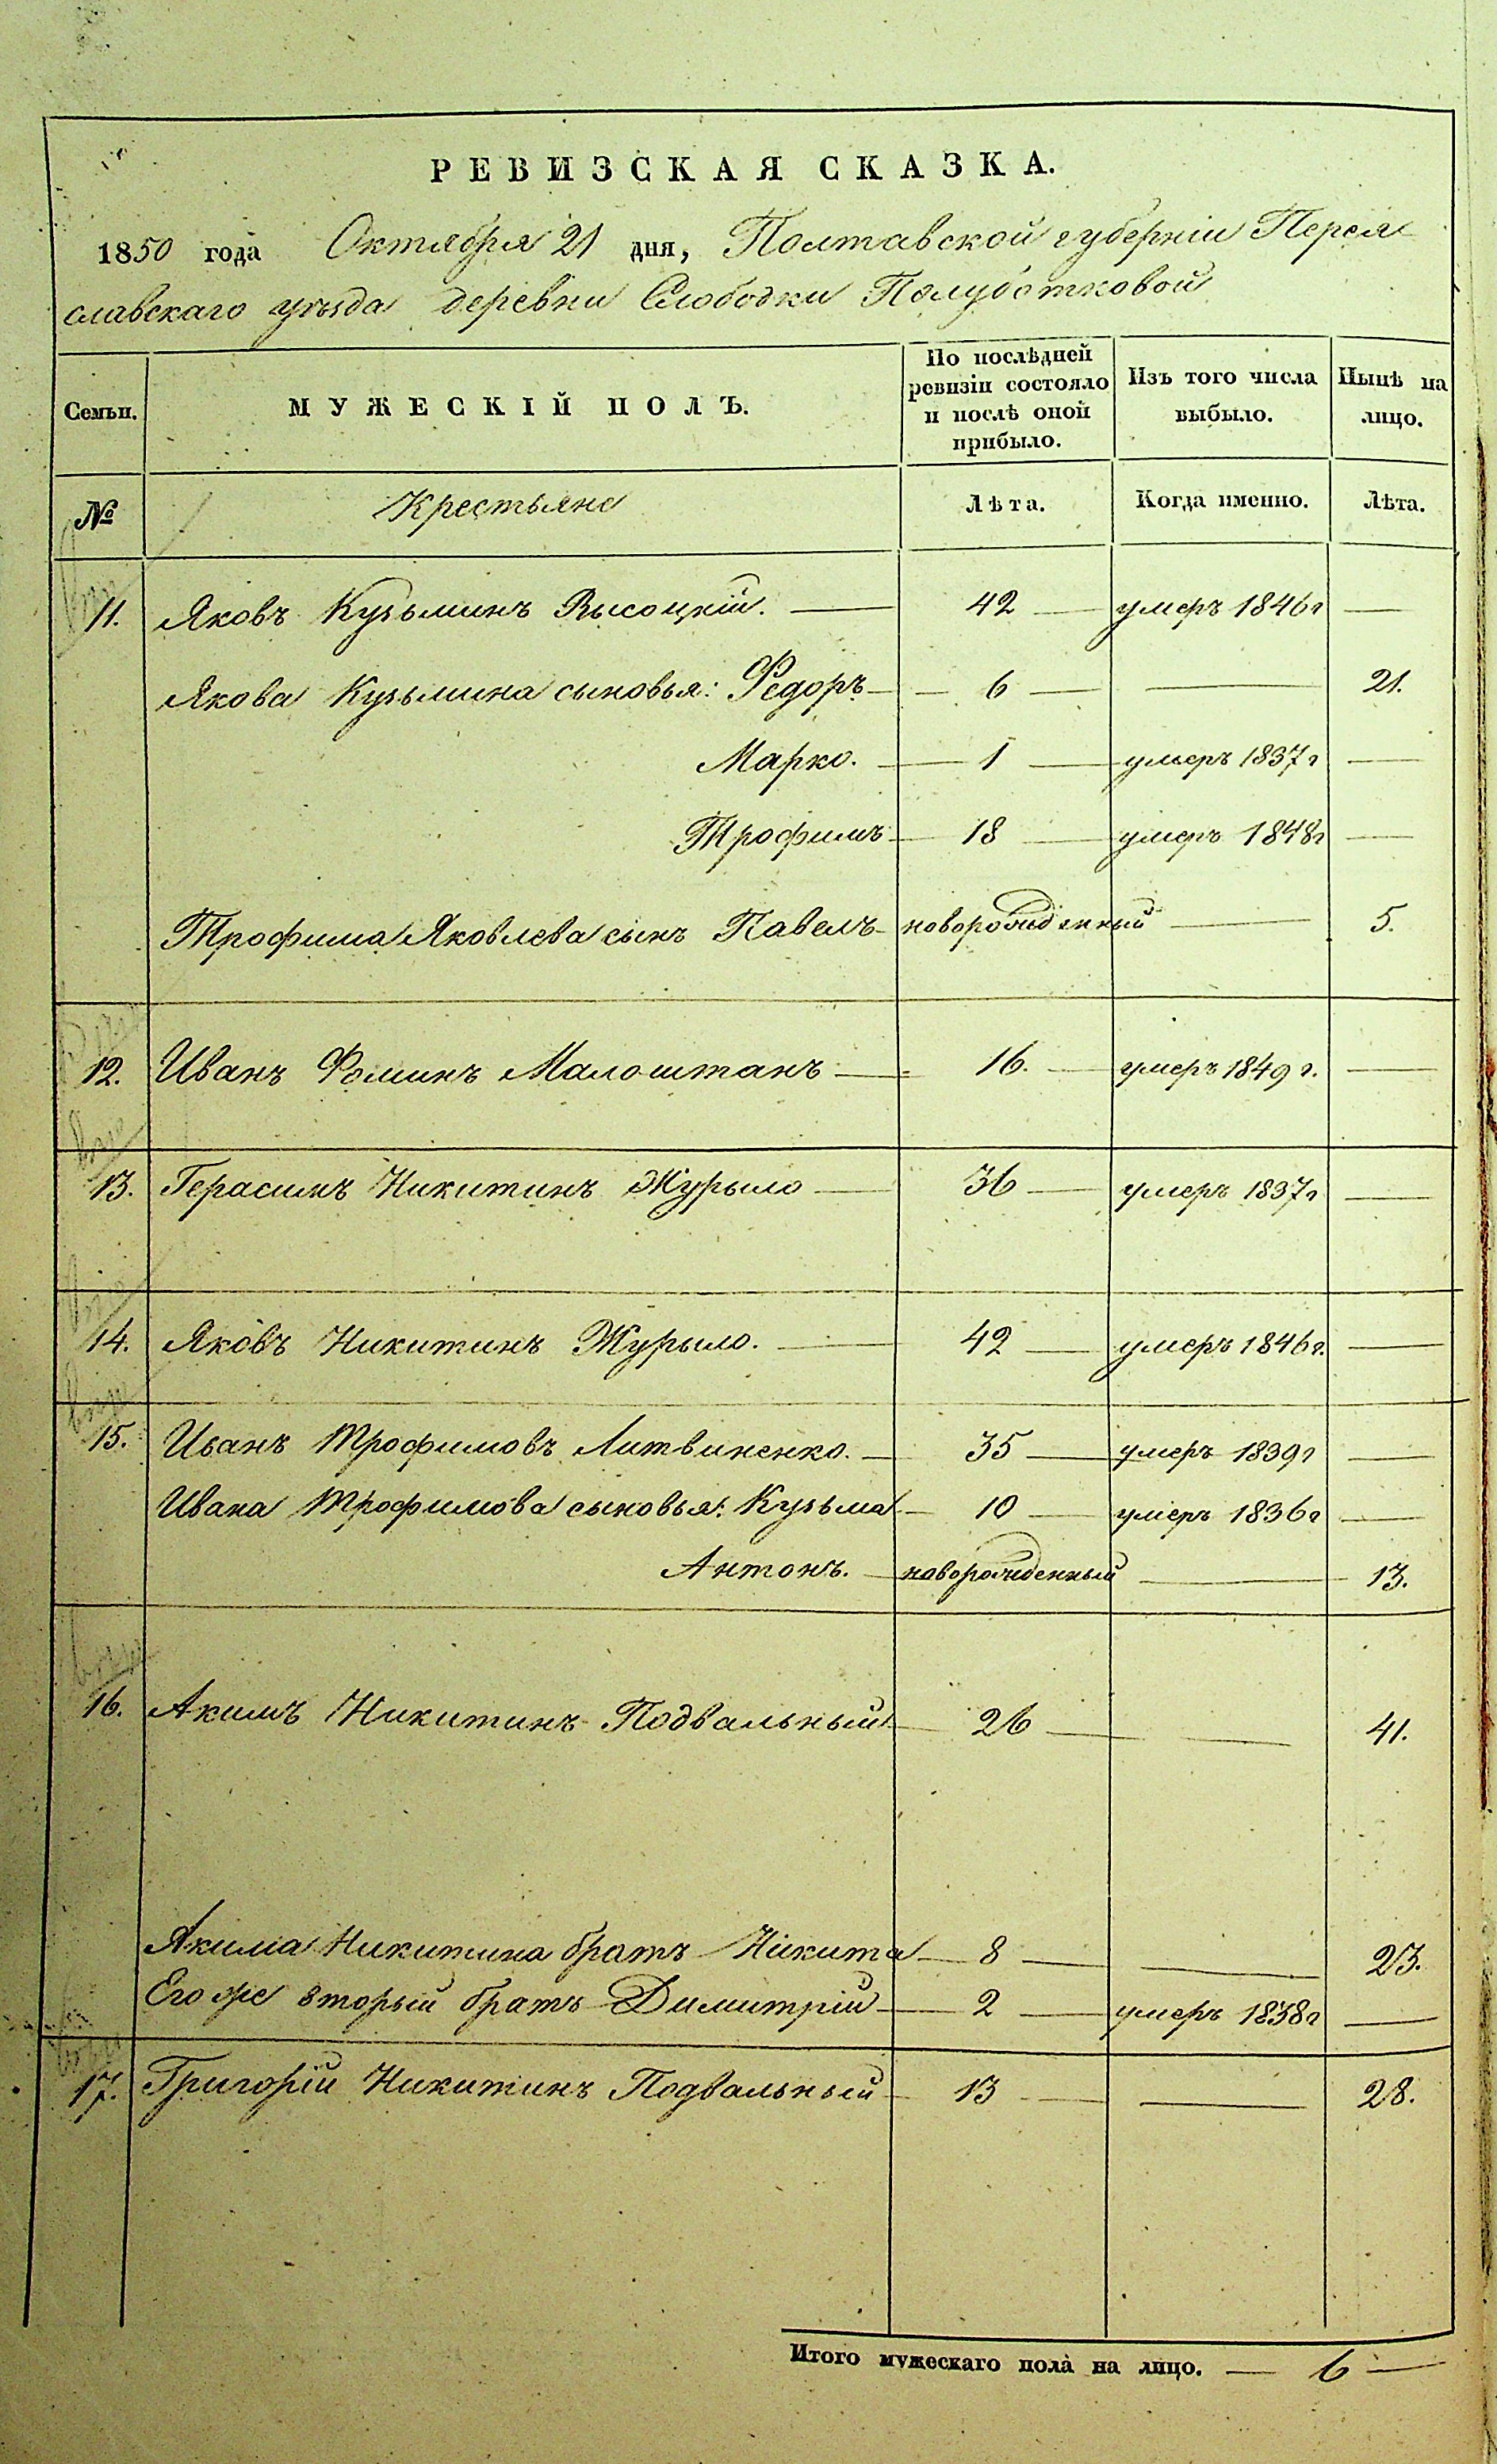 РЕВИЗСКАЯ СКАЗКА.
1850 года Октября 21 дня, Полтавской губерніи Перея
славскаго уѣзда деревни Слободки Полуботковой
Семьи. МУЖЕСКІЙ ПОЛЪ. По послѣдней ревизіи состояло и послѣ оной прибыло. Изъ того числа выбыло. Нынѣ на лицо.
№ Крестьяне Лѣта. Когда именно. Лѣта.
11. Яковъ Кузьминъ Высоцкій. — 42 — умеръ 1846 г —
Якова Кузьмина сыновья: Ѳедоръ — 6 — — 21.
Марко. — 1 — умеръ 1837 г —
Трофимъ — 18 — умеръ 1848 г —
Трофима Яковлева сынъ Павелъ — новорожденный — 5.
12. Иванъ Ѳоминъ Малоштанъ — 16. — умеръ 1849 г. —
13. Герасимъ Никитинъ Журыло — 36 — умеръ 1837 г —
14. Яковъ Никитинъ Журыло. — 42 — умеръ 1846 г. —
15. Иванъ Трофимовъ Литвиненко. — 35 — умеръ 1839 г —
Ивана Трофимова сыновья: Кузьма — 10 — умеръ 1836 г —
Антонъ. — новорожденный — 13.
16. Акимъ Никитинъ Подвальный — 26 — — 41.
Акима Никитина братъ Никита — 8 — — 23.
Его же вторый братъ Димитрій — 2 — умеръ 1838 г —
17. Григорій Никитинъ Подвальный — 13 — — 28.
Итого мужескаго пола на лицо. — 6 —